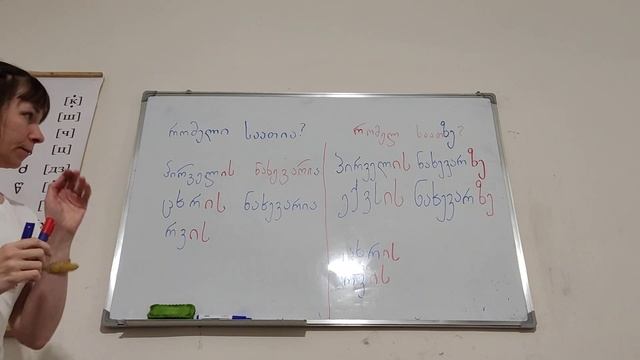 [ҟ]
[ш]
[ч]
[ц]
[дз]
რომელი საათია?
პირველის ნახევარია
ცხრის ნახევარია
რვის
რომელ საათზე?
პირველის ნახევარზე
ექვსის ნახევარზე
ცხრის
რვის